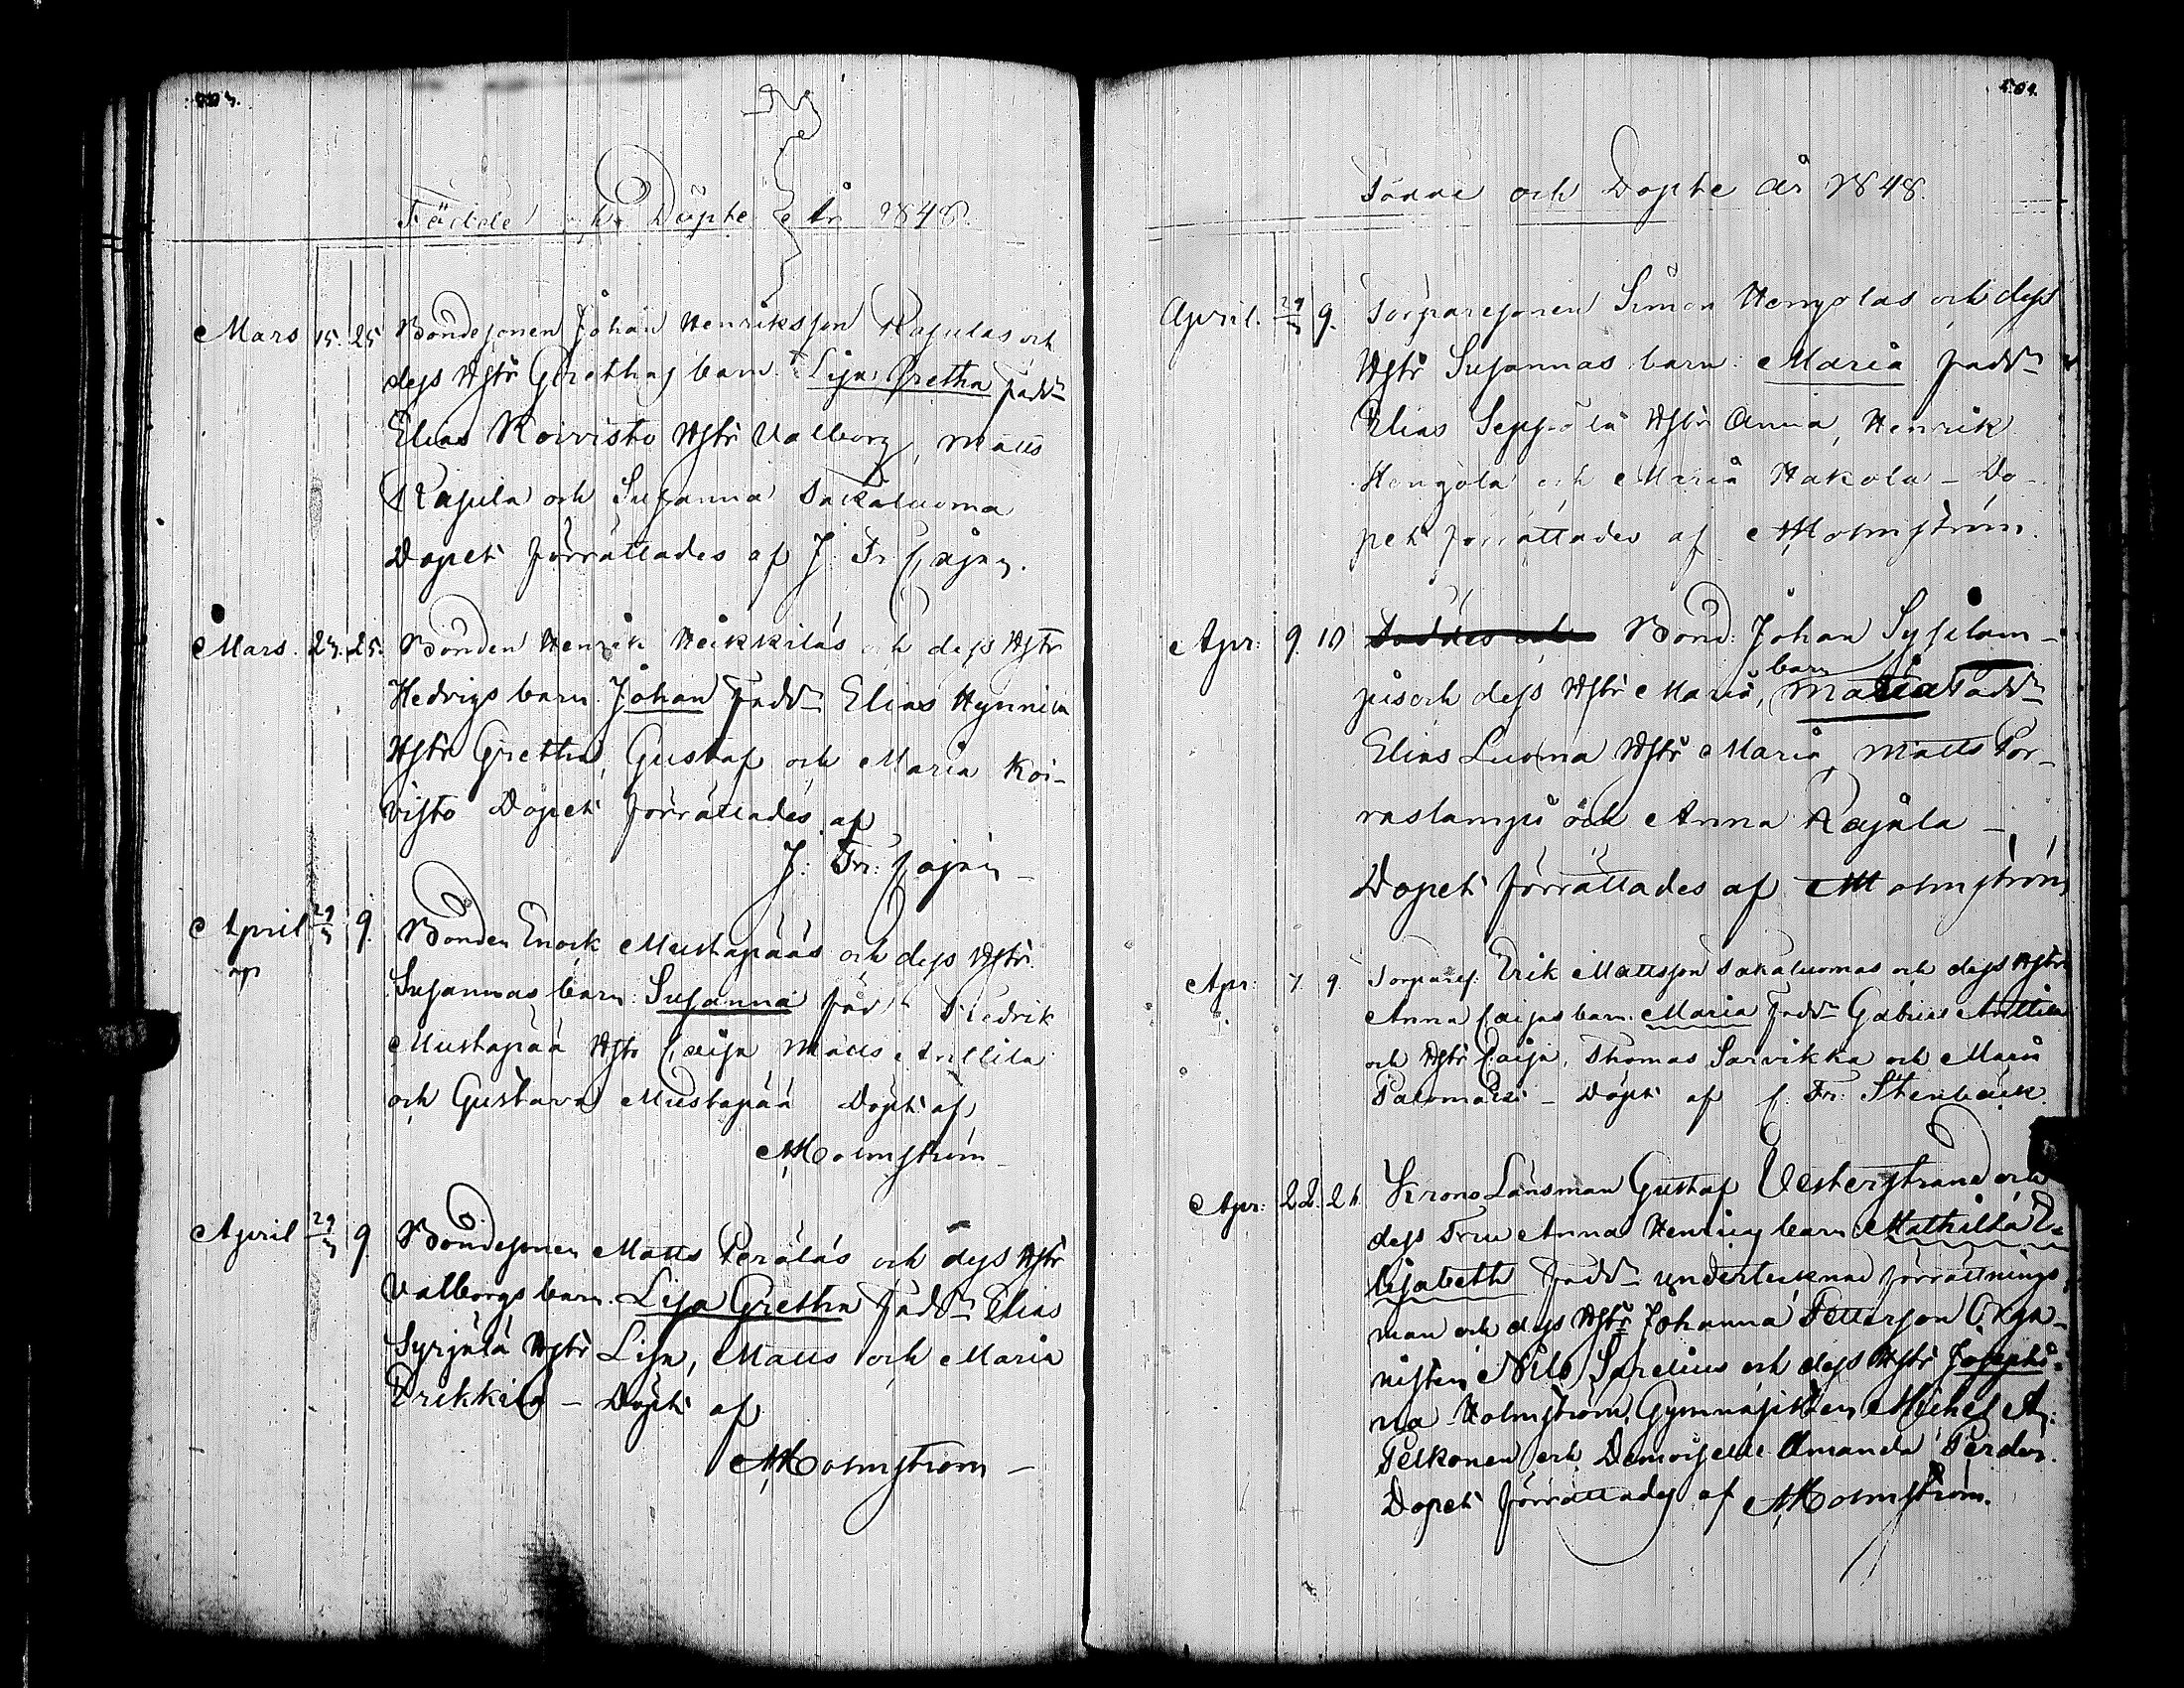 504.
Födde och Döpte År 1848.
Mars 15. 25 Bondesonen Johan Henriksson Rajulas och
dess Hstr Grethas barn Lisa Gretha fadd
Elias Koivisto Hstr Valborg, Matts
Rajula och Susanna Sakaluoma
Dopet förrättades af J. Fr. Cajan.
Mars. 23. 25. Bonden Henrik Heikkilás och dess Hstr
Hedvigs barn Johan Fadd Elias Hynnilä
Hstr Gretha, Gustaf och Maria Koi-
visto Dopet förrättades af
J: Fr: Cajan
April 29/3 9. Bonden Enock Mustapääs och dess Hstr
Susannas barn: Susanna fadd Fredrik
Mustapää Hstr Caisa Matts Anttila
och Gustava Mustapää Döpt af
Holmström
April 29/3 9 Bondesonen Matts Peräläs och dess Hstr
Valborgs barn. Lisa Gretha Fadd Elias
Syrjälä Hstr Lisa, Matts och Maria
Prikkilä – Döpt af
Holmström –
Födde och Döpte år 1848.
April. 29/3 9. Torparesonen Simon Hengolas och dess
Hstr Susannas barn: Maria fadd
Elias Seppälä Hstr Anna, Henrik
Hengola och Maria Hakola – Do-
pet förrättades af Holmström.
Apr: 9. 10 Bond: Johan Sysilam-
pis och dess Hstr Maria, barn Maria Fadd
Elias Luoma Hstr Maria, Matts Por-
raslampi och Anna Rajala –
Dopet förrättades af Holmström
Apr: 7. 9. Torparef. Erik Mattsson Sakaluomas och dess Hstr
Anna Caisas barn. Maria Fadd Gabriel Anttila
och Hstr Caisa, Thomas Sarvikka och Maria
Palomäki – Döpt af C. Fr: Stenbäck.
Apr: 22. 26. Krono Länsman Gustaf Vesterstrand och
dess Fru Anna Henrics barn Mathilda E-
lisabeth Fadd undertecknad förrättnings
man och dess Hstr Johanna Petterson Orga-
nisten Nils Sarelius och dess Hstr Josephi-
na Holmström, Gymnasisten Michel A:
Pelkonen och Demoiselle Amanda Perden.
Dopet förrättades af Holmström.